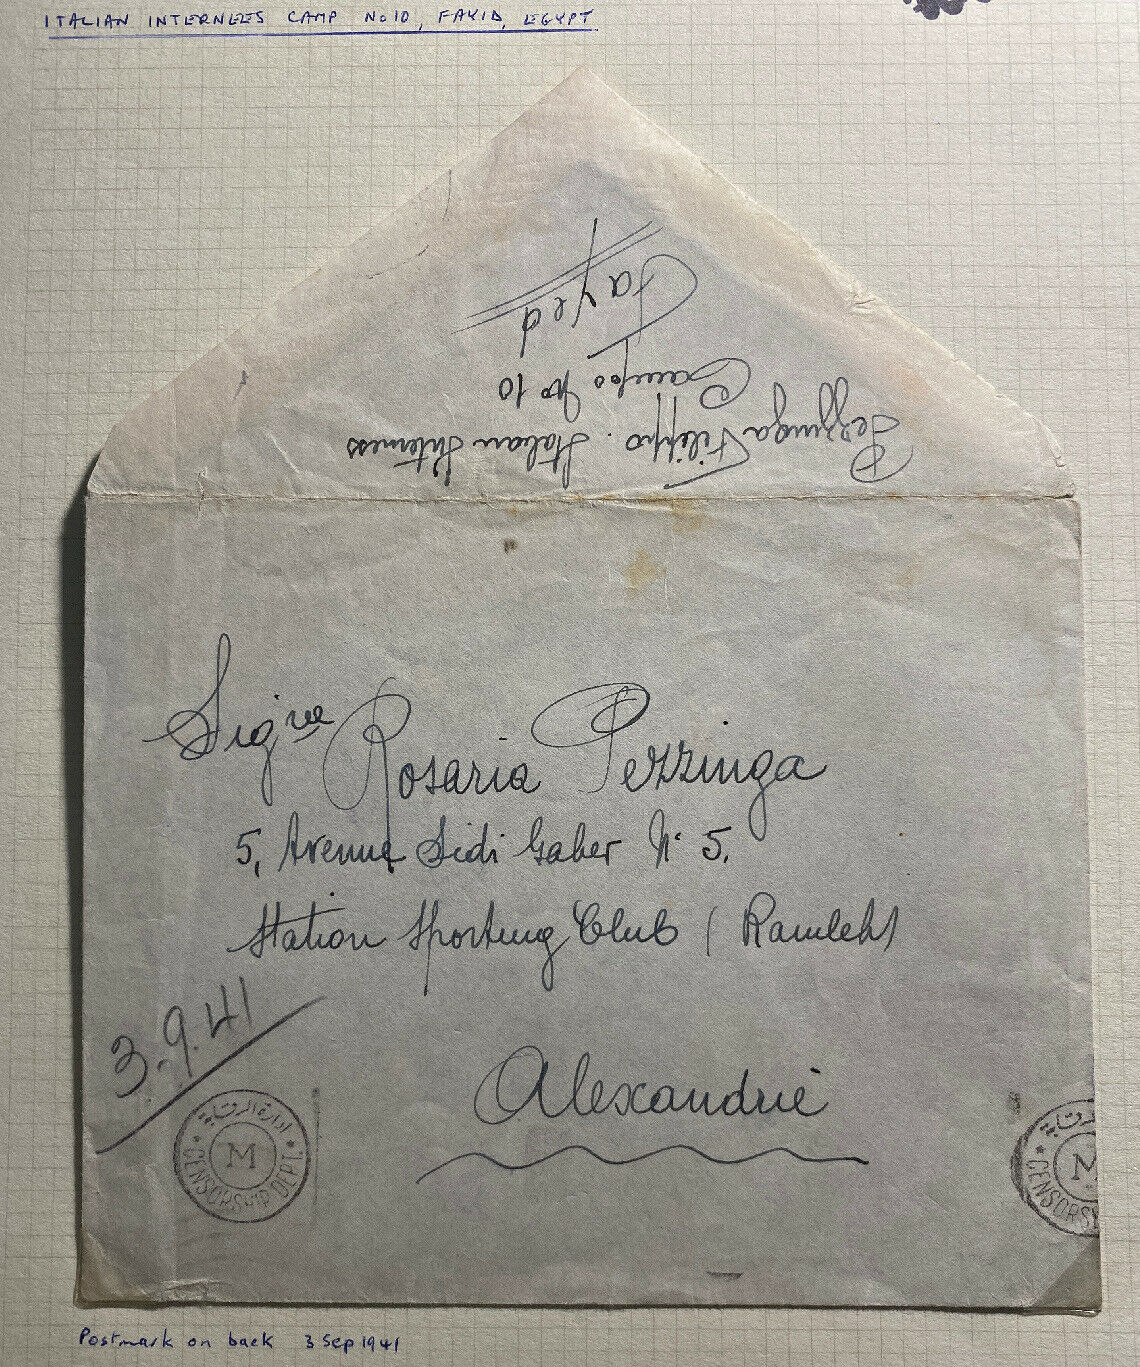 ITALIAN INTERNEES CAMP No 10, FAYID, EGYPT
Pezzinga Filippo. Italian Internees
Campo No 10
Fayed
Sigra Rosaria Pezzinga
5, Avenue Sidi Gaber N. 5.
Station Sporting Club (Ramleh)
3.9.41
Alexandrie
ادارة الرقابة
M
CENSORSHIP DEPT.
M
CENSORS
Postmark on back 3 Sep 1941